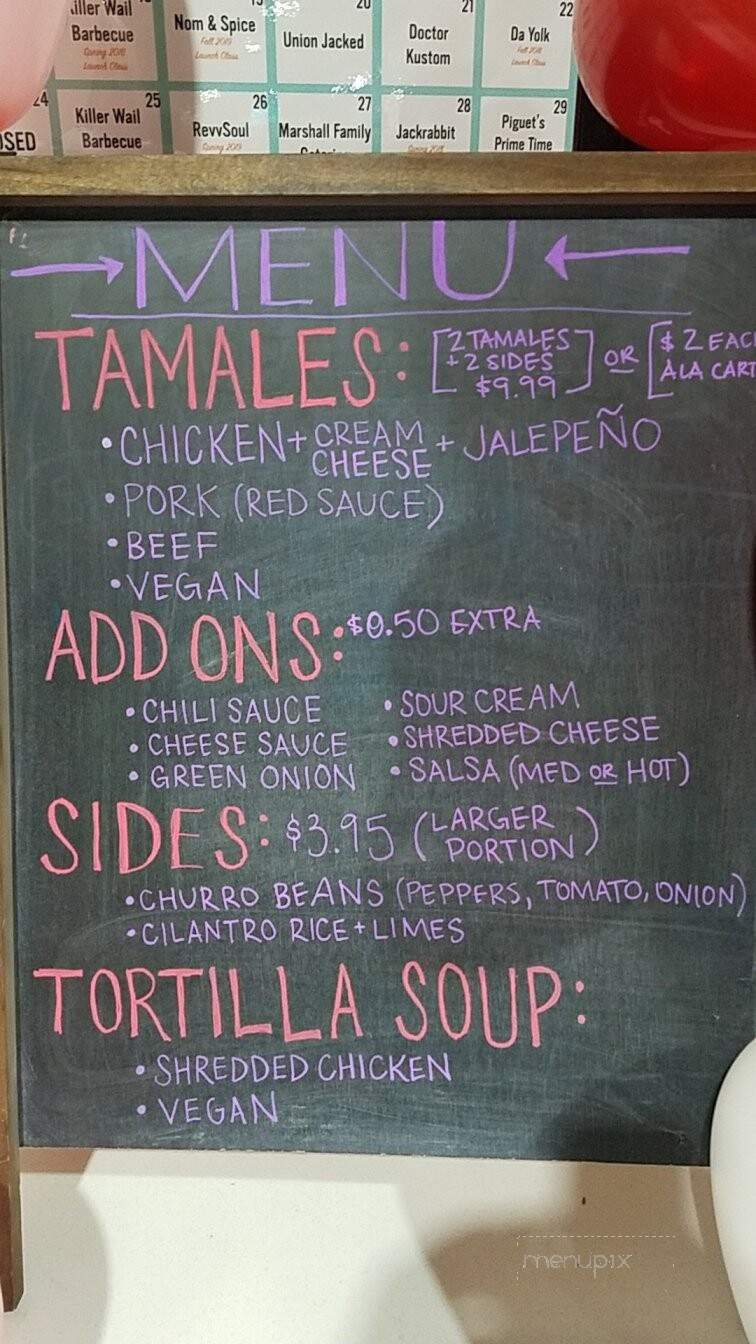 20
21
22
iller Wail
Barbecue
Spring 2018
Launch Class
Nom & Spice
Fall 2017
Launch Class
Union Jacked
Doctor
Kustom
Da Yolk
Fall 2018
Launch Class
24
25
26
27
28
29
OSED
Killer Wail
Barbecue
RevvSoul
Spring 2019
Marshall Family
Jackrabbit
Spring 2018
Piguet's
Prime Time
→ MENU ←
TAMALES: [2 TAMALES
+ 2 SIDES
$9.99] OR [$2 EAC
ALA CART
• CHICKEN + CREAM CHEESE + JALEPEÑO
• PORK (RED SAUCE)
• BEEF
• VEGAN
ADD ONS: $0.50 EXTRA
• CHILI SAUCE
• CHEESE SAUCE
• GREEN ONION
• SOUR CREAM
• SHREDDED CHEESE
• SALSA (MED OR HOT)
SIDES: $3.95 (LARGER
PORTION)
• CHURRO BEANS (PEPPERS, TOMATO, ONION)
• CILANTRO RICE + LIMES
TORTILLA SOUP:
• SHREDDED CHICKEN
• VEGAN
menupix